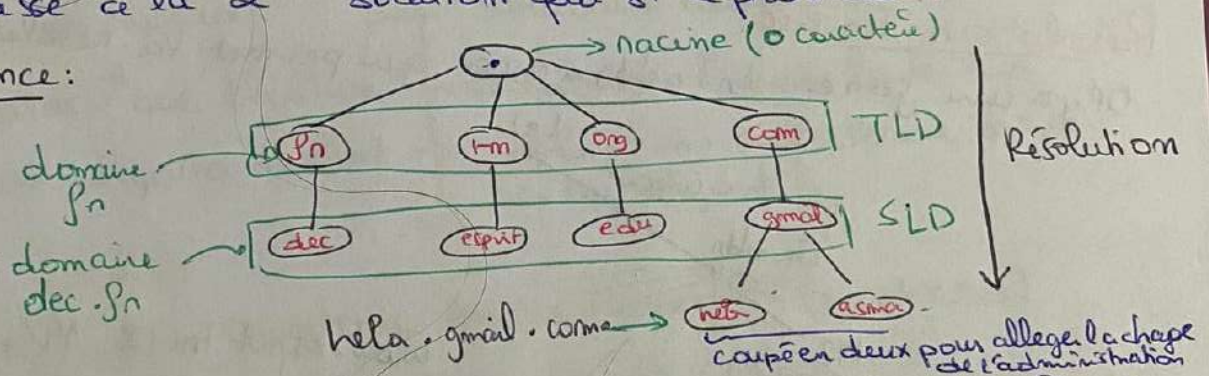 nce:
. → racine (0 caractère)
fr tn org com TLD
domaine fr
Résolution
dec esprit edu gmail SLD
domaine dec.fr
hela.gmail.com → hela asma
coupé en deux pour allege la charge
de l'administration